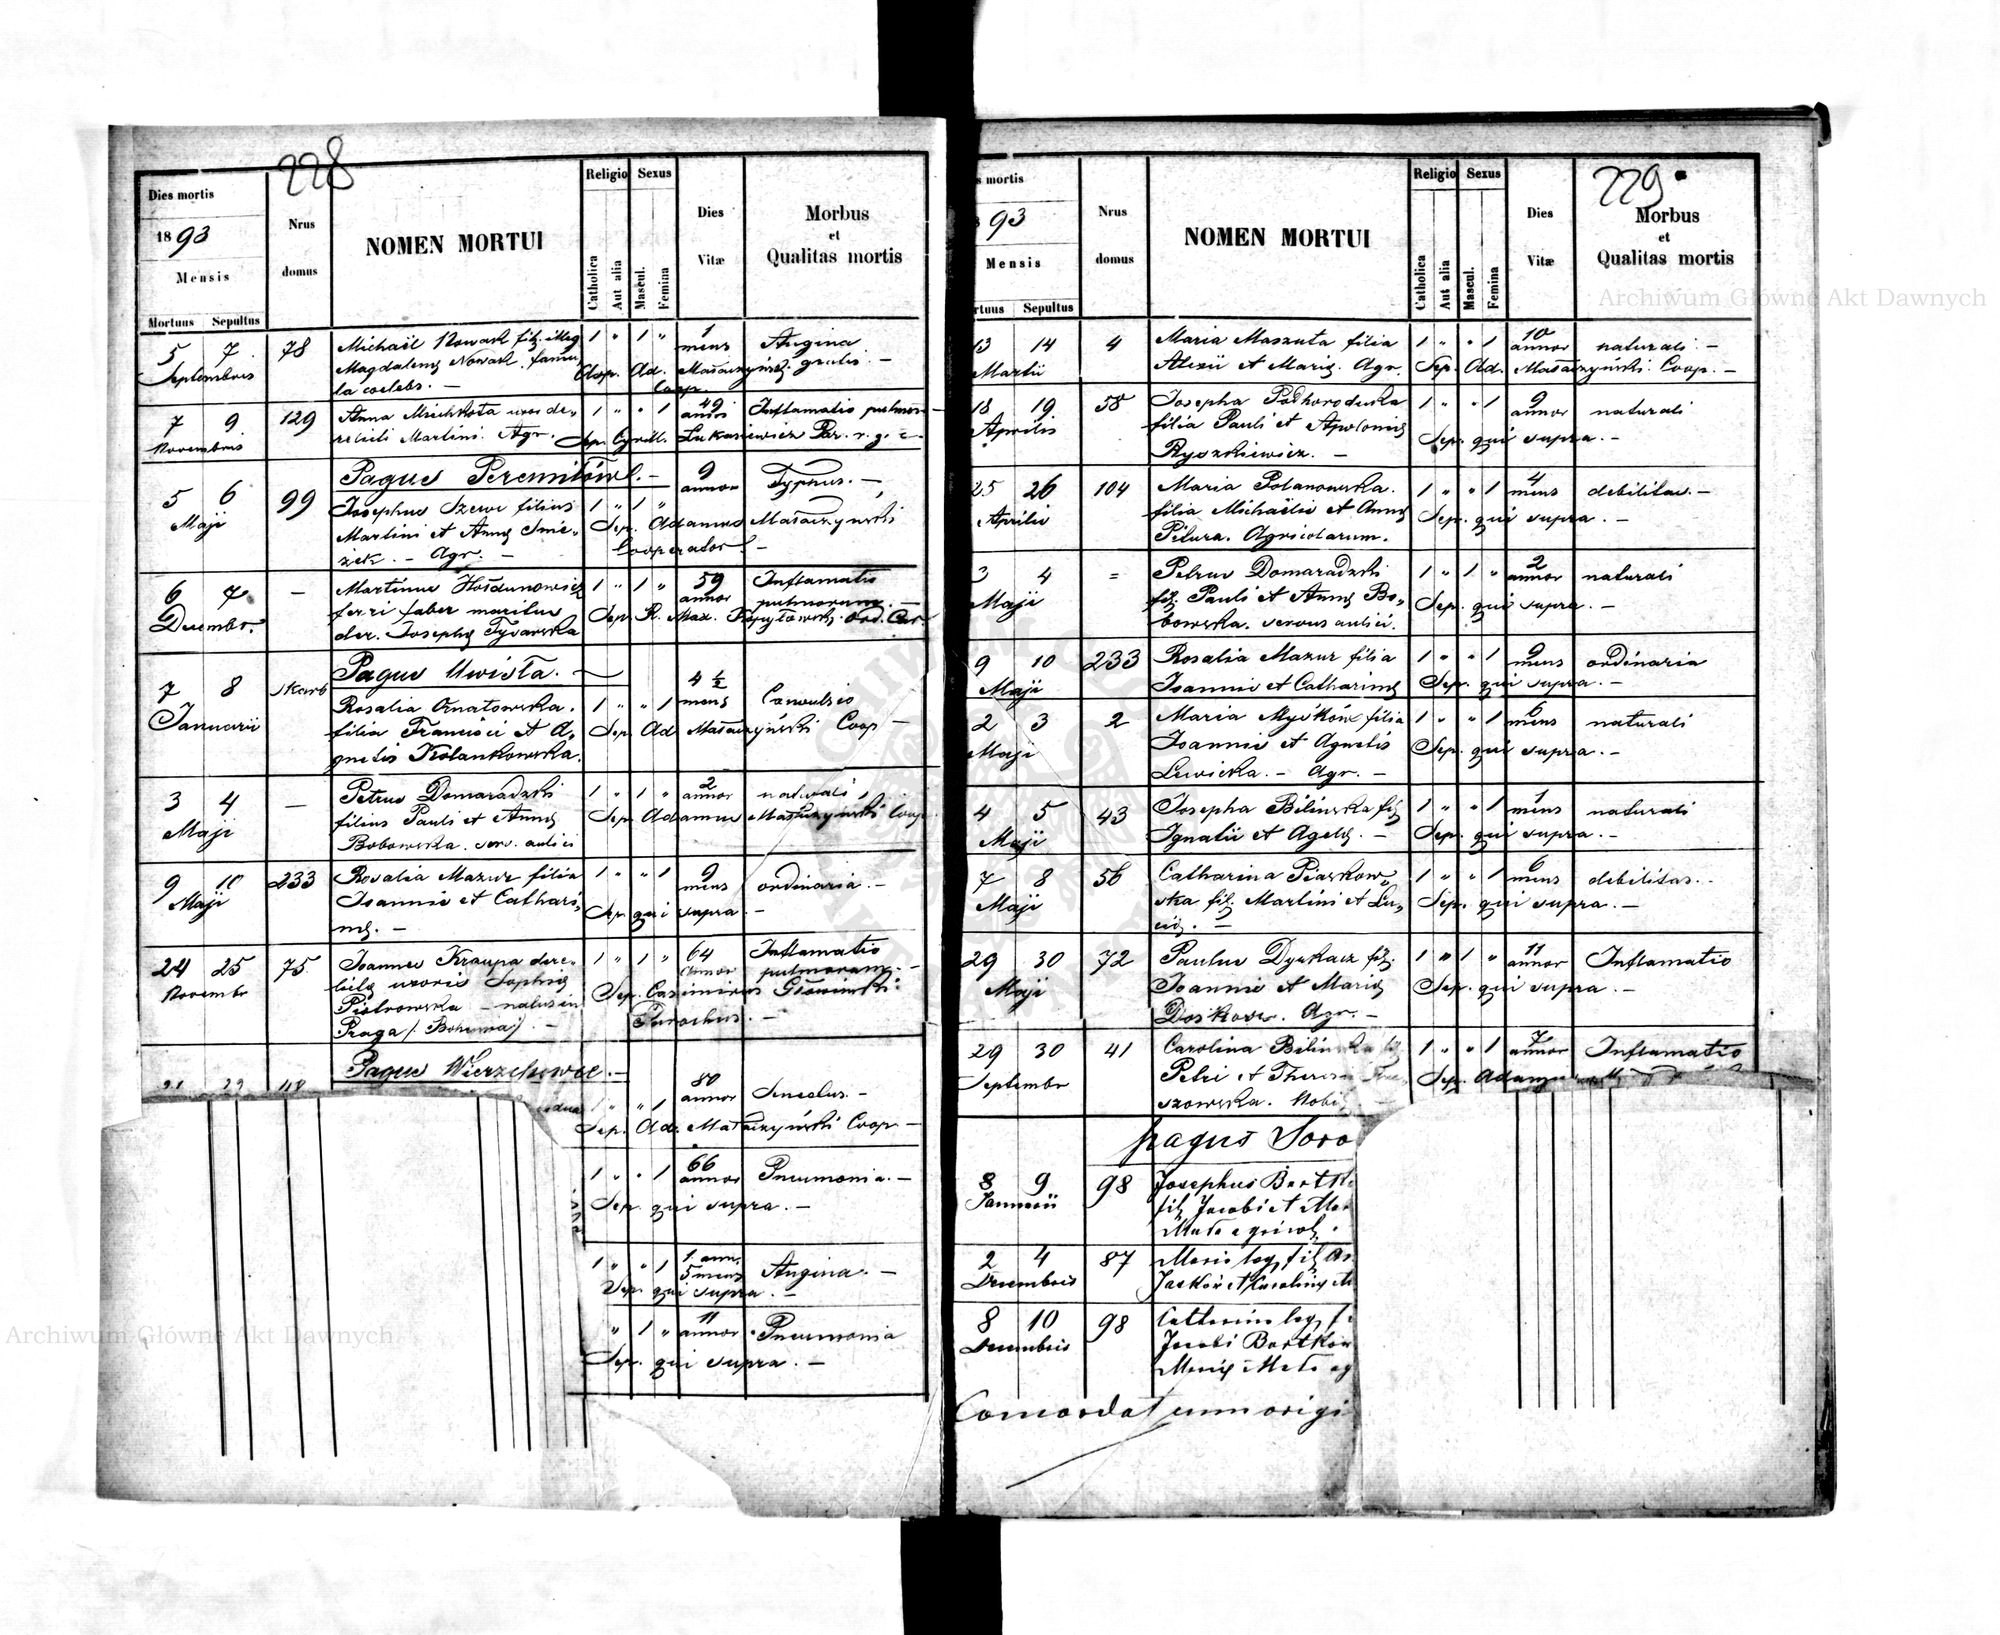 228
Dies mortis
1893
Mensis
Mortuus Sepultus
Nrus domus
NOMEN MORTUI
Religio
Catholica
Aut alia
Sexus
Mascul.
Femina
Dies Vitæ
Morbus
et
Qualitas mortis
5 7 78 Michaël Nowak fil. illeg 1 " 1 " 1 mens Angina
Septembris Magdalenę Nowak. famu Ad. gratis. —
la coelebs. — Coop.
7 9 129 Anna 1 " " 1 49 annor Inflamatio pulmon
Novembris Martini. Agr. Sep. Cyrill. Łukasiewicz Par. r. g. c.
Pagus Peremiłów. —
5 6 99 Josephus Szewc filius 1 " 1 " 9 annor Typhus. —
Maji Martini et Annę Smie- Sep. Adamus Masaczyński
żek. — Agr. — Cooperator —
6 7 — Martinus 1 " 1 " 59 annor Inflamatio
Decembr. ferri faber maritus pulmonum. —
der. Josephę Sep. R. Max. Kopytowski ord. Car
Pagus Uwisła. —
7 8 skarb Rosalia Ornatowska. 1 " " 1 4 ½ mens Convulsio
Januarii filia Francisci et A- Sep. Ad Masaczyński Coop —
gnetis Kolankowska.
3 4 — Petrus Domaradzki 1 " 1 " 2 annor naturali
Maji filius Pauli et Annę Sep. Adamus Masaczyński Coop.
Bobowska. serv. aulici
9 10 233 Rosalia Mazur filia 1 " " 1 9 mens ordinaria. —
Maji Joannis et Cathari- Sep. qui supra. —
nę. —
24 25 75 Joannes Kraupa dere- 1 " 1 " 64 annor Inflamatio
Novembr lictę uxoris Sophię pulmonum. —
Piotrowska — natus in Sep. Casimirus Głowiński
Praga /: Bohemia :/. — Parochus. —
Pagus Wierzchowce. —
" 1 80 annor Senectus. —
Sep. Ad. Masaczyński Coop. —
1 " " 1 66 annor Pneumonia. —
Sep. qui supra. —
1 " " 1 1 ann. 5 mens Angina. —
Sep. qui supra. —
" 1 " 11 annor Pneumonia
Sep. qui supra. —
229
s mortis
93
Mensis
rtuus Sepultus
Nrus domus
NOMEN MORTUI
Religio
Catholica
Aut alia
Sexus
Mascul.
Femina
Dies Vitæ
Morbus
et
Qualitas mortis
13 14 4 Maria Maszuta filia 1 " " 1 10 annor naturali. —
Martii Alexii et Marię. Agr. Sep. Ad. Masaczyński. Coop. —
18 19 58 Josepha Podhorodecka 1 " " 1 9 annor naturali
Aprilis filia Pauli et Apolonię Sep. qui supra. —
Ryszkiewicz. —
25 26 104 Maria Polanowska. 1 " " 1 4 mens debilitas. —
Aprilis filia Michaëlis et Annę Sep. qui supra. —
Pitura. Agricolarum.
3 4 = Petrus Domaradzki 1 " 1 " 2 annor naturali
Maji fil. Pauli et Annę Bo- Sep. qui supra. —
bowska. servus aulici.
9 10 233 Rosalia Mazur filia 1 " " 1 9 mens ordinaria
Maji Joannis et Catharinę Sep. qui supra. —
2 3 2 Maria Myśków filia 1 " " 1 6 mens naturali
Maji Joannis et Agnetis Sep. qui supra. —
Lewicka. — Agr. —
4 5 43 Josepha Bilinska fil. 1 " " 1 1 mens naturali
Maji Ignatii et Agetę. — Sep. qui supra. —
7 8 56 Catharina Piaskow- 1 " " 1 6 mens debilitas. —
Maji ska fil. Martini et Lu- Sep. qui supra. —
cię. —
29 30 72 Paulus Dyakacz fil. 1 " 1 " 11 annor Inflamatio
Maji Joannis et Marię Sep. qui supra. —
Agr. —
29 30 41 Carolina Bilinska fil 1 " " 1 7 annor Inflamatio
Septembr Petri et Theresię Sep.
szowska. Nobi
pagus Soro
8 9 98 Josephus Bartk
Januarii fil. Jacobi et Mar
2 4 87 Maria leg. fil
Decembris Jaśków et Karolinę M
8 10 98 Catharina leg. f
Decembris Jacobi Bartków
Marię
Concordat cum origi
Archiwum Główne Akt Dawnych
Archiwum Główne Akt Dawnych